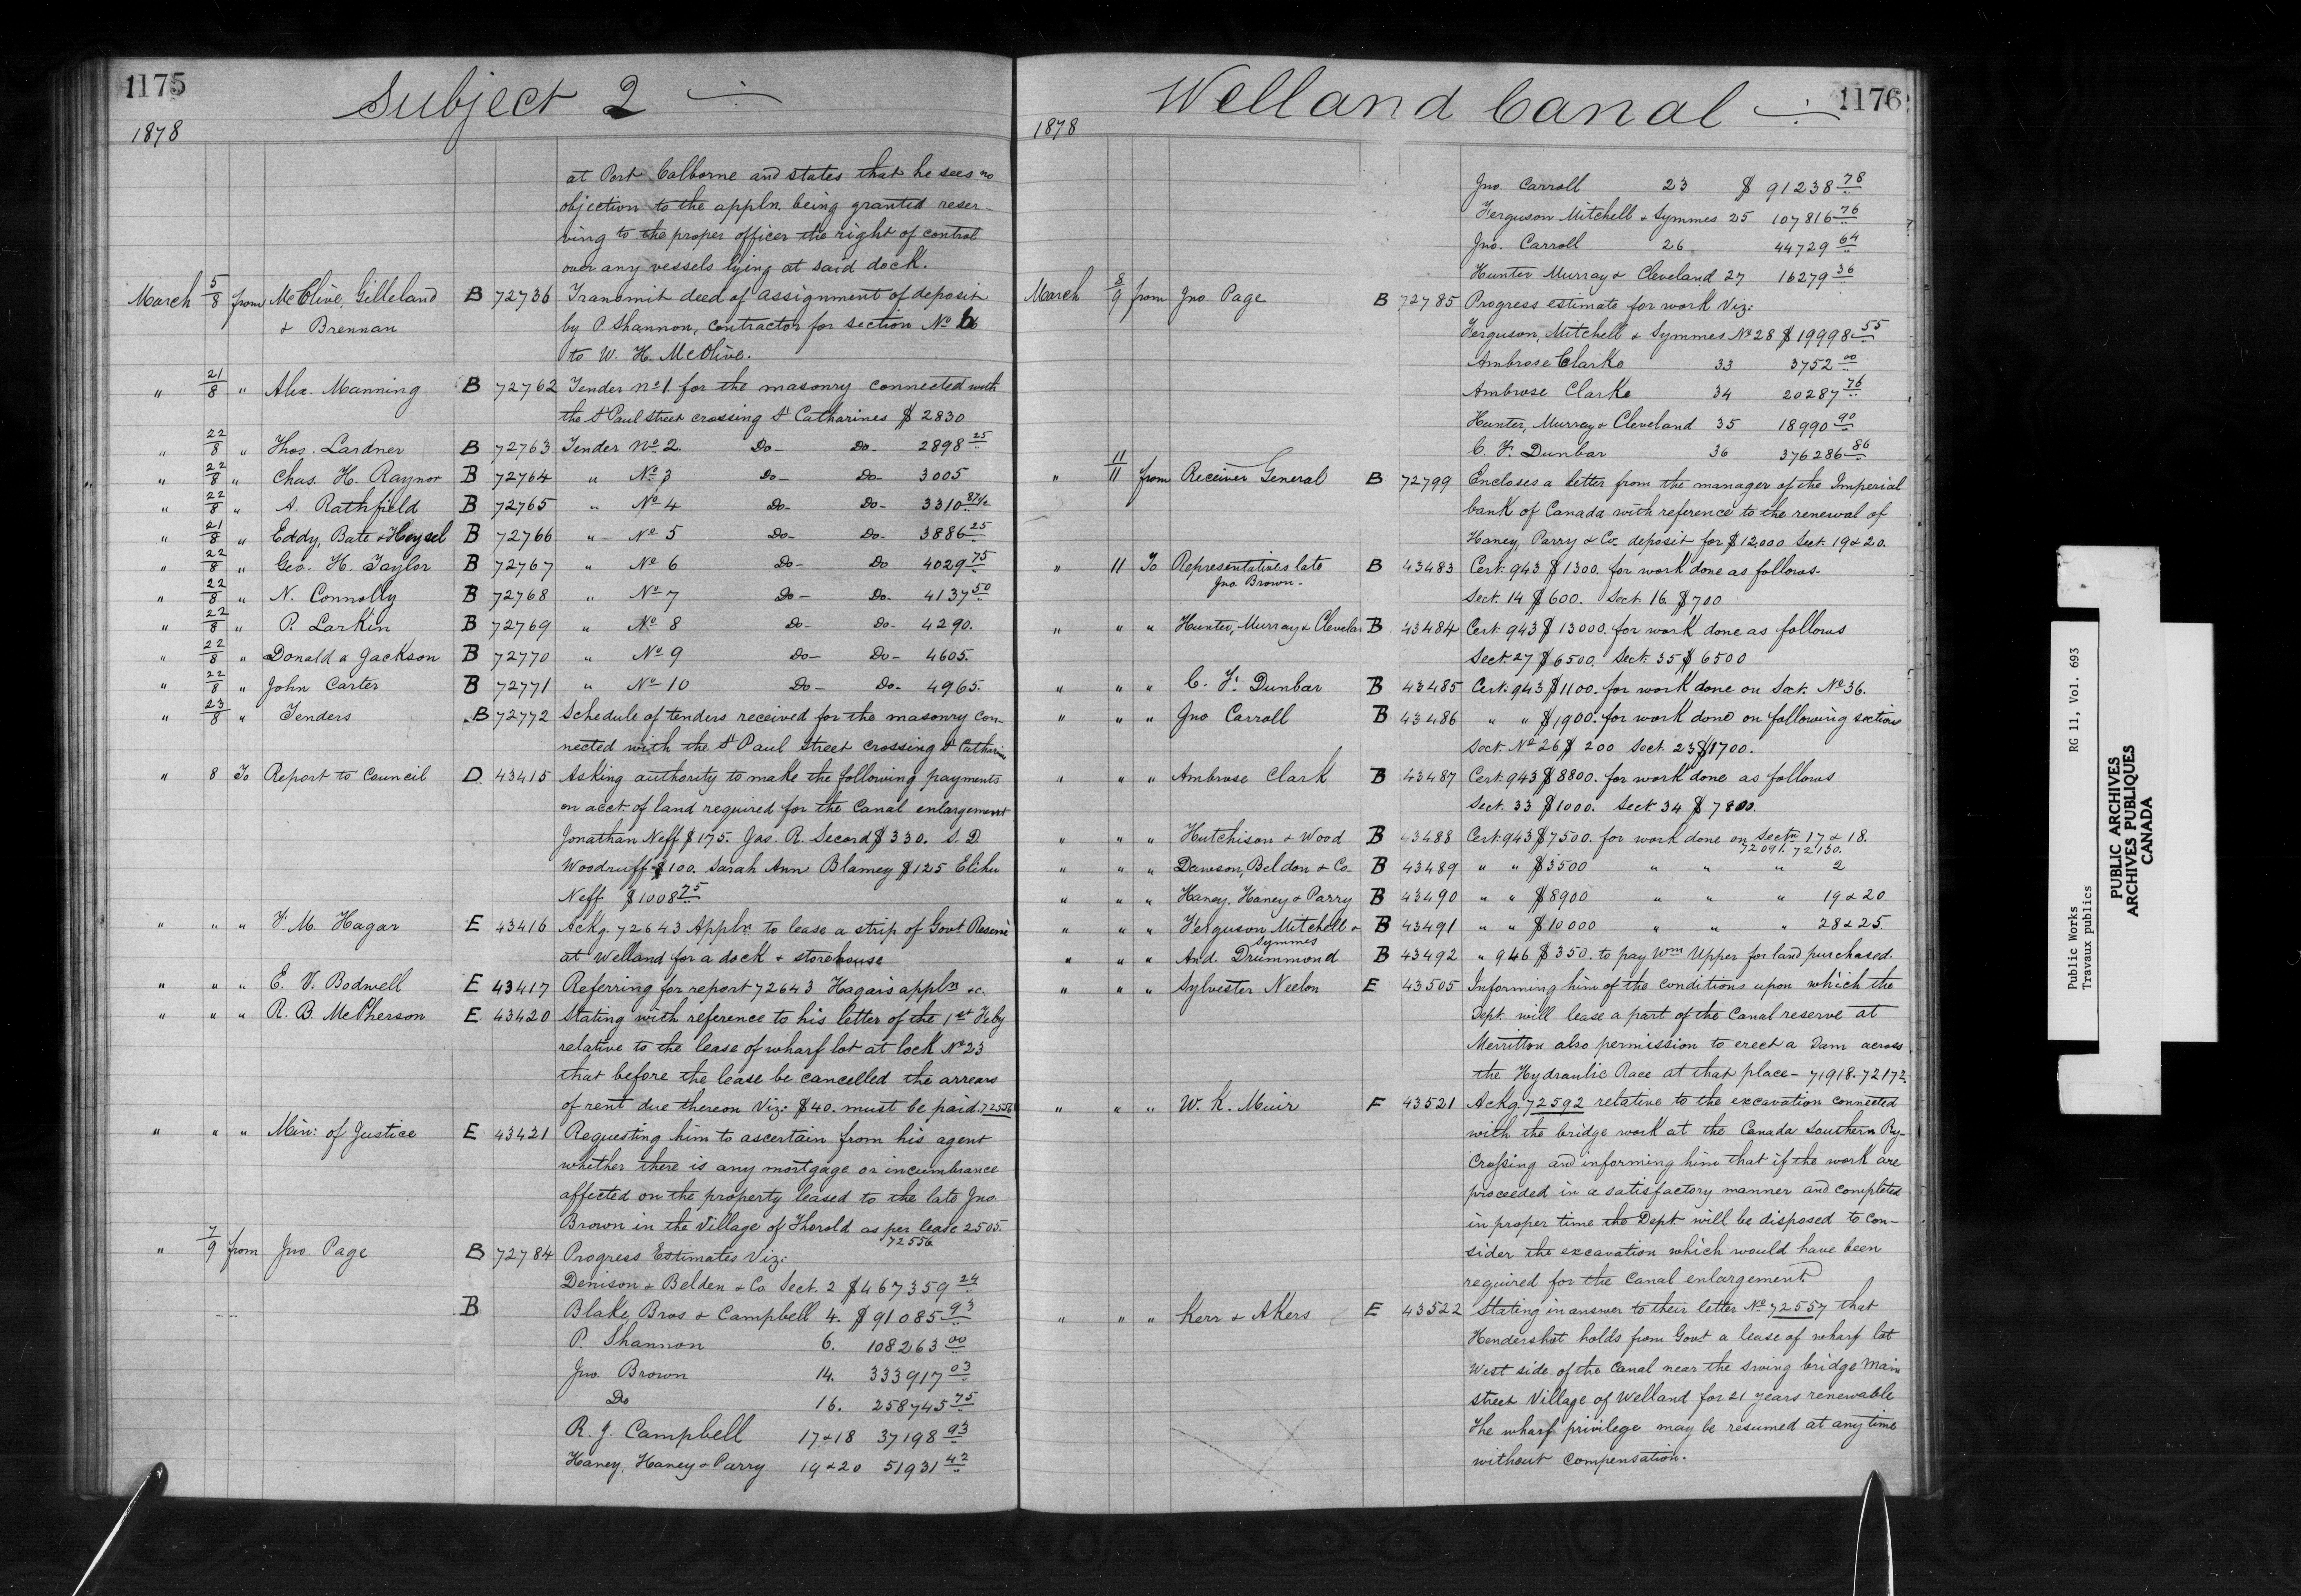 1175
Subject 2
1878
at Port Colborne and states that he sees no
objection to the appln. being granted reser-
ving to the proper officer the right of control
over any vessels lying at said dock.
March 5/8 from McClive, Gilleland B 72736 Transmit deed of assignment of deposit
& Brennan by P. Shannon, contractor for section No 6
to W. H. McClive.
" 21/8 " Alex. Manning B 72762 Tender No 1. for the masonry connected with
the St Paul street crossing St Catharines $ 2830
" 22/8 " Thos. Lardner B 72763 Tender No 2. Do- Do- 2898 25
" 22/8 " Chas. H. Raynor B 72764 " No 3 Do- Do- 3005
" 22/8 " A. Rathfield B 72765 " No 4 Do- Do- 3310 87 1/2
" 21/8 " Eddy, Bate & Heysel B 72766 " No 5 Do- Do- 3886 25
" 22/8 " Geo. H. Taylor B 72767 " No 6 Do- Do 4029 75
" 22/8 " N. Connolly B 72768 " No 7 Do- Do- 4137 50
" 22/8 " P. Larkin B 72769 " No 8 Do- Do- 4290.
" 22/8 " Donald & Jackson B 72770 " No 9 Do- Do- 4605.
" 22/8 " John Carter B 72771 " No 10 Do- Do- 4965.
" 23/8 " Tenders B 72772 Schedule of tenders received for the masonry con-
nected with the St Paul Street crossing St Catharines
" 8 To Report to Council D 43415 Asking authority to make the following payments
on acct. of land required for the Canal enlargement
Jonathan Neff $175. Jas. R. Secord $330. S. D.
Woodruff $100. Sarah Ann Blamey $125 Elihu
Neff $1008 75
" " " F. M. Hagar E 43416 Ackg. 72643 Appln. to lease a strip of Govt Reserve
at Welland for a dock & storehouse
" " " E. V. Bodwell E 43417 Referring for report 72643 Hagar's appln &c.
" " " R. B. McPherson E 43420 Stating with reference to his letter of the 1st Feby
relative to the lease of wharf lot at lock No 23
that before the lease be cancelled the arrears
of rent due thereon Viz: $40. must be paid. 72556
" " " Min: of Justice E 43421 Requesting him to ascertain from his agent
whether there is any mortgage or incumbrance
affected on the property leased to the late Jno.
Brown in the Village of Thorold as per lease 2505.
72556
" 7/9 from Jno. Page B 72784 Progress Estimates Viz:
Denison & Belden & Co Sect. 2 $467359 24
B Blake, Bros & Campbell 4. $91085 93
P. Shannon 6. 108263 00
Jno. Brown 14. 333917 03
Do 16. 258745 75
R. J. Campbell 17&18 37198 93
Haney, Haney & Parry 19&20 51931 42
Welland Canal
1176
1878
Jno Carroll 23 $ 91238 78
Ferguson Mitchell & Symmes 25 107816 76
Jno. Carroll 26 44729 64
Hunter Murray & Cleveland 27 16279 36
March 8/9 from Jno Page B 72785 Progress estimate for work Viz:
Ferguson, Mitchell & Symmes No 28 $19998 55
Ambrose Clarke 33 3752 00
Ambrose Clarke 34 20287 76
Hunter, Murray & Cleveland 35 18990 90
C. F. Dunbar 36 376286 86
" 11/11 from Receiver General B 72799 Encloses a letter from the manager of the Imperial
bank of Canada with reference to the renewal of
Haney, Parry & Co. deposit for $12,000 Sect. 19&20.
" 11 To Representatives late B 43483 Cert. 943 $1300. for work done as follows-
Jno Brown- Sect. 14 $600. Sect. 16. $700
" " " Hunter, Murray & Clevelan B 43484 Cert. 943 $13000. for work done as follows
Sect. 27 $6500. Sect. 35 $6500
" " " C. F. Dunbar B 43485 Cert. 943 $1100. for work done on Sect. No 36.
" " " Jno Carroll B 43486 " " $1900. for work done on following sections
Sect. No 26 $ 200 Sect. 23 $1700.
" " " Ambrose Clark B 43487 Cert. 943 $8800. for work done as follows
Sect. 33 $1000. Sect 34 $7800.
" " " Hutchison & Wood B 43488 Cert. 943 $7500. for work done on Sectn 17 & 18.
72091. 72130.
" " " Dawson, Beldon & Co. B 43489 " " $3500 " " " 2
" " " Haney, Haney & Parry B 43490 " " $8900 " " " 19&20
" " " Ferguson Mitchell & B 43491 " " $10000 " " " 28&25.
Symmes
" " " And. Drummond B 43492 " 946 $350. to pay Wm Upper for land purchased.
" " " Sylvester Neelon E 43505 Informing him of the conditions upon which the
Dept. will lease a part of the Canal reserve at
Merritton also permission to erect a Dam across
the Hydraulic Race at that place- 71918-72172.
" " " W. K. Muir F 43521 Ackg. 72592 relative to the excavation connected
with the bridge work at the Canada Southern Ry-
Crossing and informing him that if the work are
proceeded in a satisfactory manner and completed
in proper time the Dept. will be disposed to con-
sider the excavation which would have been
required for the Canal enlargement
" " " Kerr & Akers E 43522 Stating in answer to their letter No 72557 that
Hendershot holds from Govt a lease of wharf lot
West side of the Canal near the swing bridge Main
street Village of Welland for 21 years renewable
The wharf privilege may be resumed at any time
without compensation.
Public Works RG 11, Vol. 693
Travaux publics
PUBLIC ARCHIVES
ARCHIVES PUBLIQUES
CANADA